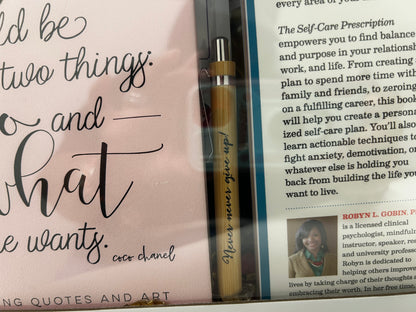 ld be
two things:
and
what
e wants.
coco chanel
NG QUOTES AND ART
Never never give up!
every area of your
The Self-Care Prescription
empowers you to find balance
and purpose in your relations
work, and life. From creating a
plan to spend more time with
family and friends, to zeroing
on a fulfilling career, this book
will help you create a persona
ized self-care plan. You'll also
learn actionable techniques to
fight anxiety, demotivation, or
whatever else is holding you
back from building the life you
want to live.
ROBYN L. GOBIN, P
is a licensed clinical
psychologist, mindful
instructor, speaker, ro
and university profess
Robyn is dedicated to
helping others improve
lives by taking charge of their thoughts a
embracing their worth. In her free time,